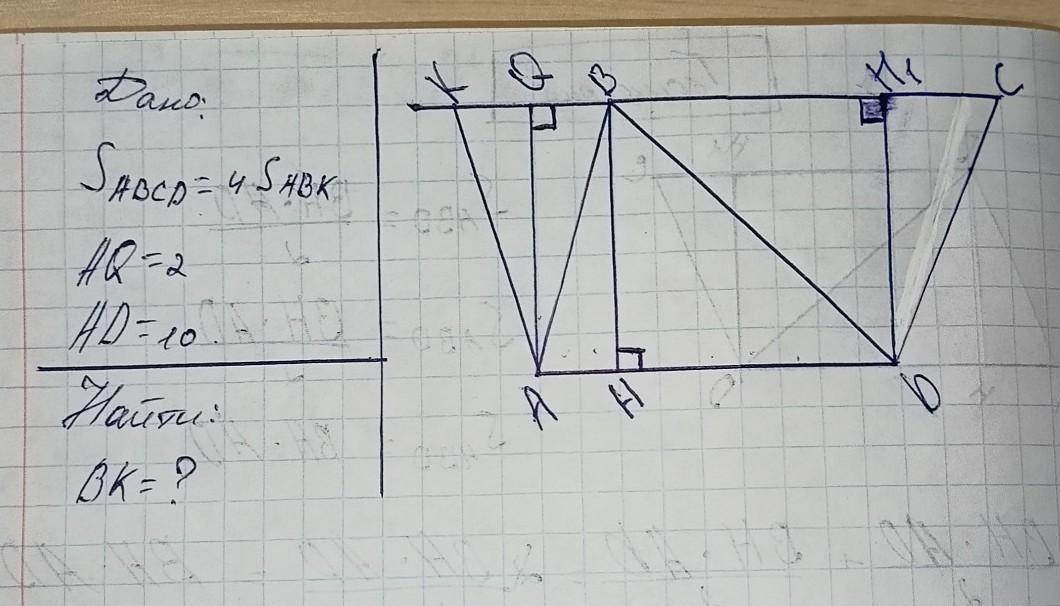 Дано:
SABCD = 4 SABK
AQ = 2
AD = 10
Найти:
BK = ?
K Q B H1 C
A H D